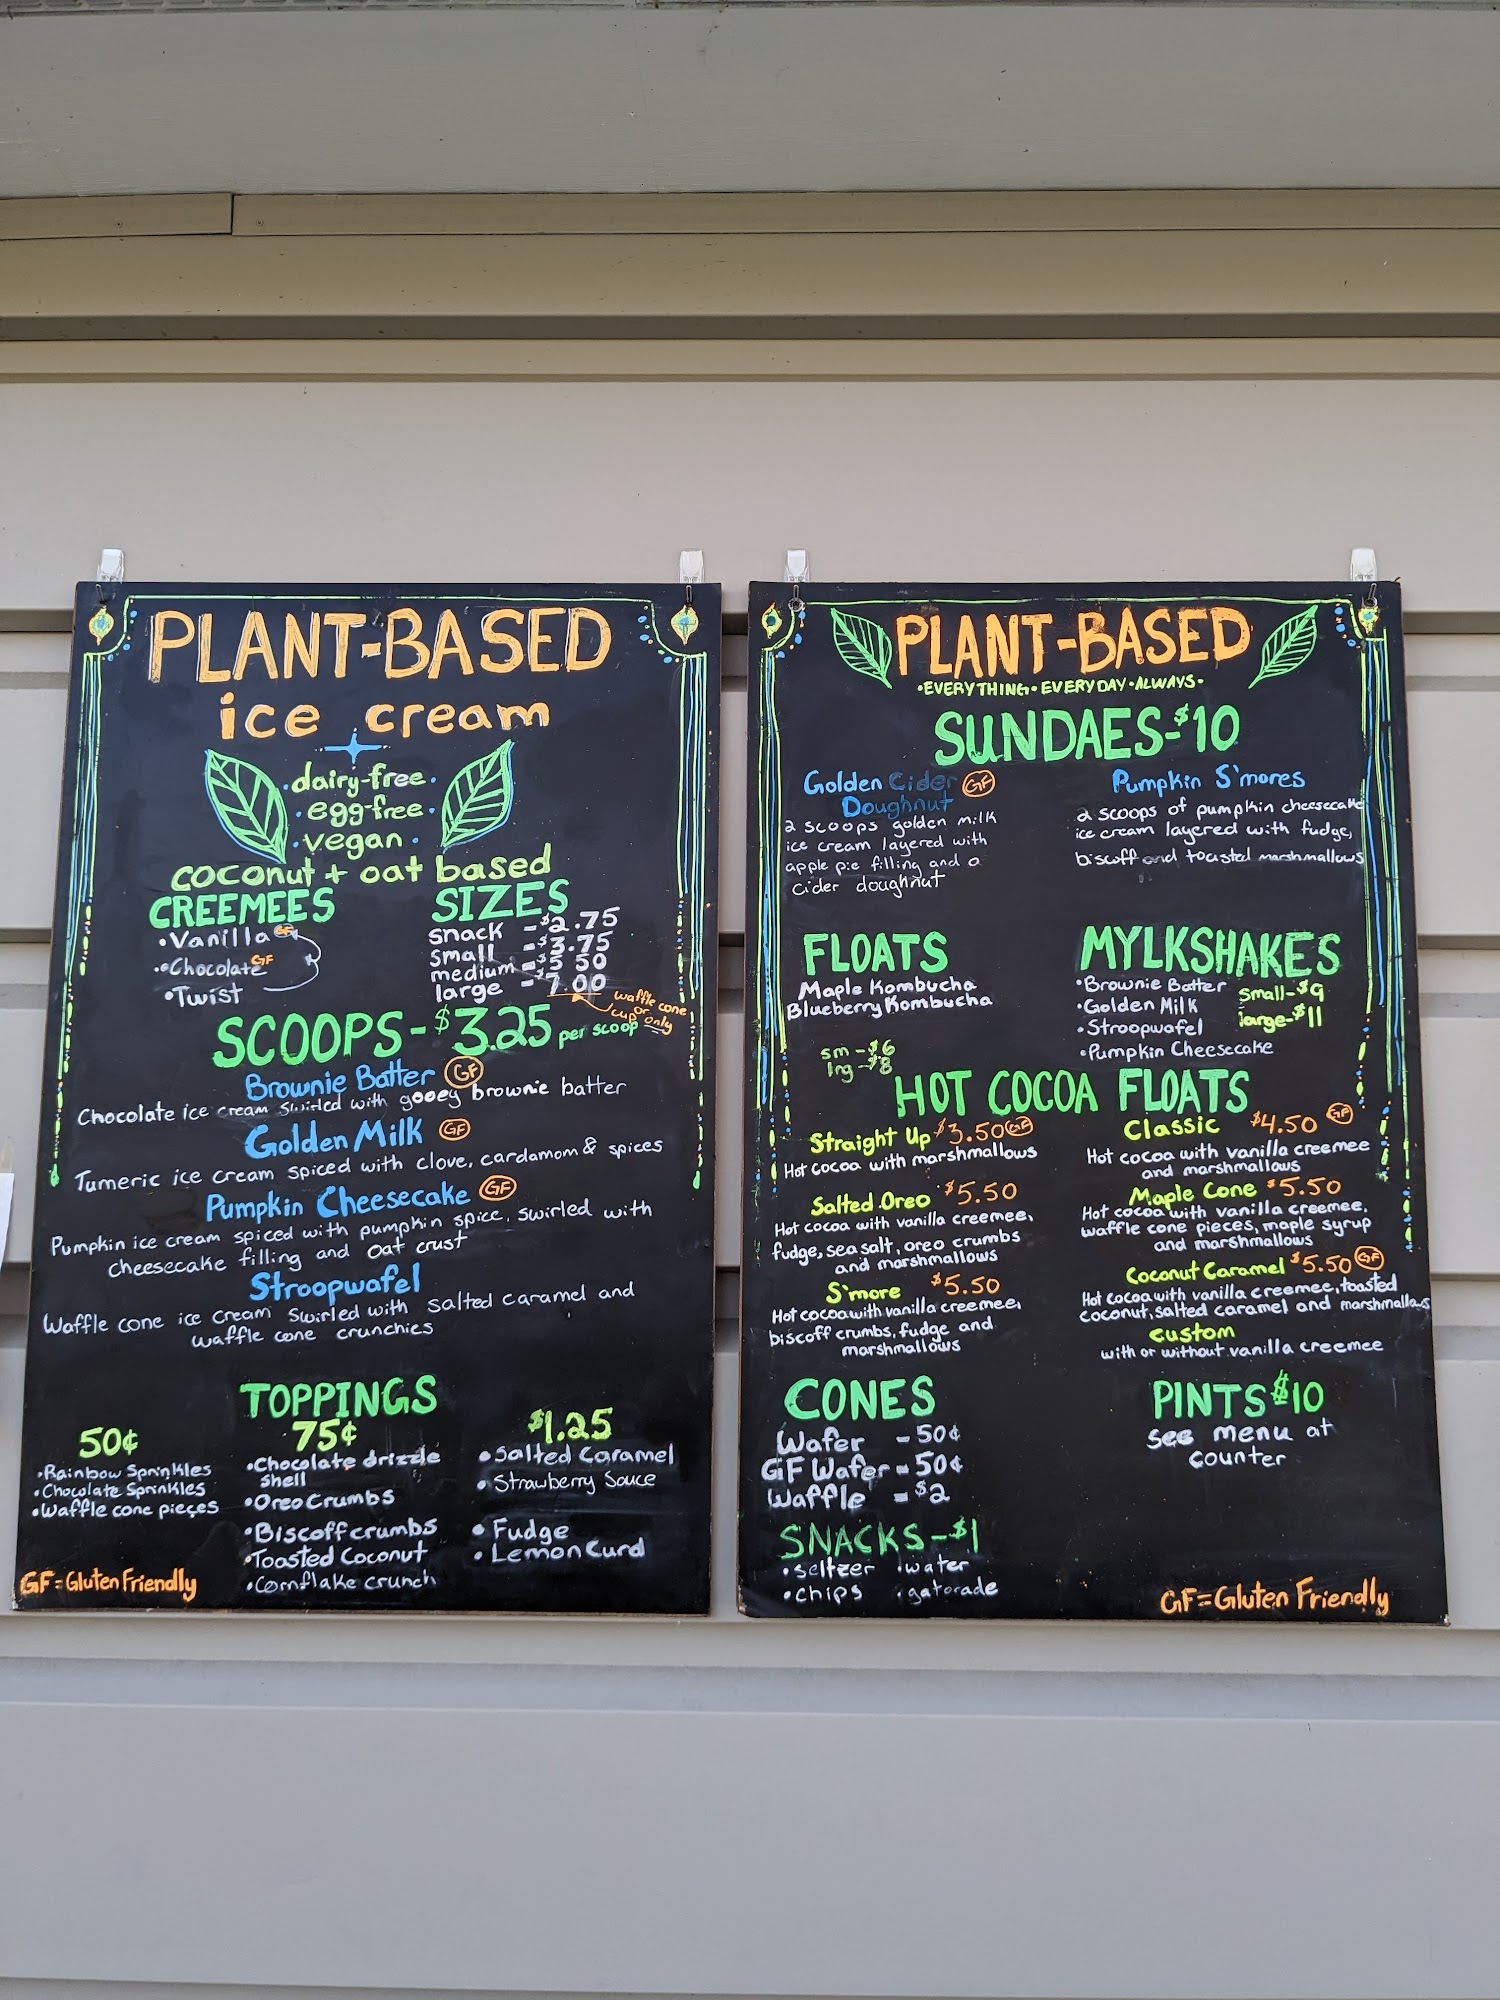 PLANT-BASED
ice cream
•dairy-free•
•egg-free•
•vegan•
coconut + oat based
CREEMEES
•Vanilla GF
•Chocolate GF
•Twist
SIZES
snack - $2.75
small - $3.75
medium - $5.50
large - $7.00
waffle cone
or
cup only
SCOOPS - $3.25 per scoop
Brownie Batter GF
Chocolate ice cream swirled with gooey brownie batter
Golden Milk GF
Tumeric ice cream spiced with clove, cardamom & spices
Pumpkin Cheesecake GF
Pumpkin ice cream spiced with pumpkin spice, swirled with
cheesecake filling and oat crust
Stroopwafel
Waffle cone ice cream swirled with salted caramel and
waffle cone crunchies
TOPPINGS
50¢
•Rainbow Sprinkles
•Chocolate Sprinkles
•Waffle cone pieces
75¢
•Chocolate drizzle
shell
•Oreo Crumbs
•Biscoff crumbs
•Toasted Coconut
•Cornflake crunch
$1.25
•Salted Caramel
•Strawberry Sauce
•Fudge
•Lemon Curd
GF=Gluten Friendly
PLANT-BASED
•EVERYTHING•EVERYDAY•ALWAYS•
SUNDAES-$10
Golden Cider GF
Doughnut
2 scoops golden milk
ice cream layered with
apple pie filling and a
cider doughnut
Pumpkin S'mores
2 scoops of pumpkin cheesecake
ice cream layered with fudge,
biscoff and toasted marshmallows
FLOATS
Maple Kombucha
Blueberry Kombucha
sm -$6
lng -$8
MYLKSHAKES
•Brownie Batter
•Golden Milk
•Stroopwafel
•Pumpkin Cheesecake
small-$9
large-$11
HOT COCOA FLOATS
Straight Up $3.50 GF
Hot cocoa with marshmallows
Salted Oreo $5.50
Hot cocoa with vanilla creemee,
fudge, sea salt, oreo crumbs
and marshmallows
S'more $5.50
Hot cocoa with vanilla creemee,
biscoff crumbs, fudge and
marshmallows
Classic $4.50 GF
Hot cocoa with vanilla creemee
and marshmallows
Maple Cone $5.50
Hot cocoa with vanilla creemee,
waffle cone pieces, maple syrup
and marshmallows
Coconut Caramel $5.50 GF
Hot cocoa with vanilla creemee, toasted
coconut, salted caramel and marshmallows
custom
with or without vanilla creemee
CONES
Wafer - 50¢
GF Wafer - 50¢
Waffle = $2
SNACKS-$1
•seltzer •water
•chips •gatorade
PINTS $10
see menu at
counter
GF=Gluten Friendly